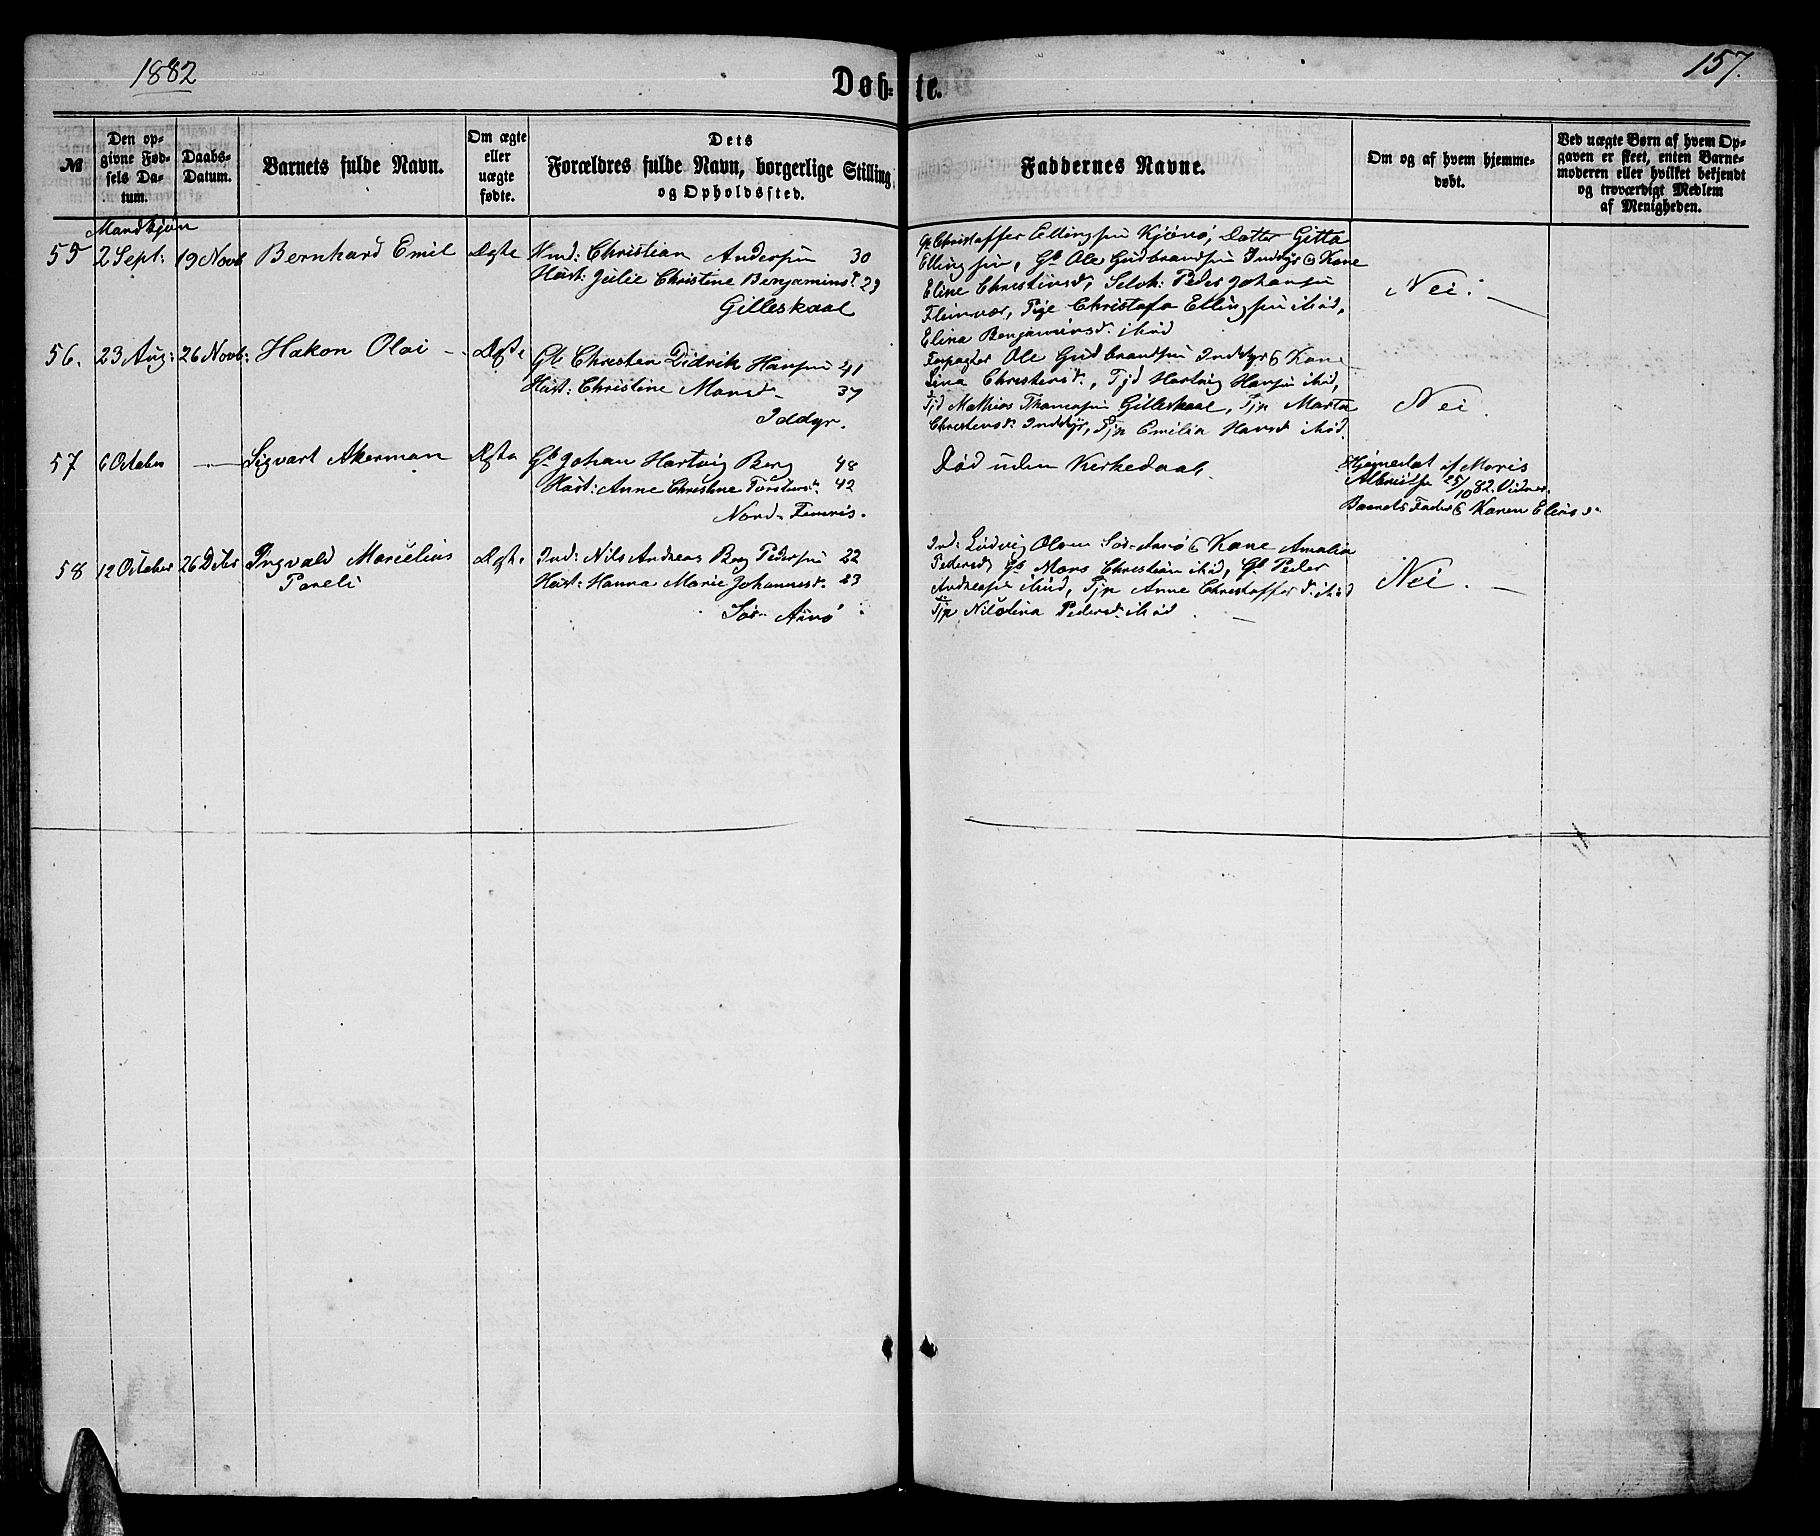 1882
Døbte.
157.
№
Den opgivne Fødsels Datum.
Daabs-Datum.
Barnets fulde Navn.
Om ægte eller uægte fødte.
Dets Forældres fulde Navn, borgerlige Stilling og Opholdssted.
Faddernes Navne.
Om og af hvem hjemmedøbt.
Ved uægte Børn af hvem Opgaven er skeet, enten Barnemoderen eller hvilket bekjendt og troværdigt Medlem af Menigheden.
Mandkjøn
55 2 Sept: 19 Novb Bernhard Emil Ægte
Ind: Christian Andersen 30
Hust: Julie Christine Benjaminsd. 29
Gilleskaal
Gb Christoffer Ellingsen Kjønø, Datter Gitta
Ellingsen, Gb Ole Gudbrandsen Inddyr & Kone
Eline Christensd, Selvh: Peder Johansen
Fleinvær, Pige Christofa Ellingsen ibid,
Elina Benjaminsd. ibid
Nei.
56. 23 Aug: 26 Novb: Hakon Olai Ægte
Gb Christen Didrik Hansen 41
Hust: Christine Monsd. 37
Iddyr.
Forpagter Ole Gudbrandsen Inddyr & Kone
Lina Christensd., Tjd Hartvig Hansen ibid,
Tjd Mathias Thomassen Gilleskaal, Tjp Marta
Christensd. Inddyr, Tjp Emilia Hansd ibid.
Nei.
57 6 October — Sigvart Akerman Ægte
Gb Johan Hartvig Berg 48
Hust: Anne Christine Torstensd. 42
Nord-Finnes.
Død uden Kirkedaab.
Hjemmedøbt af Moris
Albrigts 25/10 82. Vidner
Barnets Fader & Karen Elisd
58 12 October 26 Decbr Ingvald Marcelius
Pareli
Ægte
Ind: Nils Andreas Berg Pedersen 22
Hust: Hanna Marie Johannesd. 23
Sør-Arnø
Ind: Ludvig Olsen Sør-Arnø & Kone Amalia
Pedersd, Gb Mons Christian ibid, Gb Peder
Andreasen ibid, Tjp Anne Christoffersd. ibid
Tjp. Nicolina Pedersd. ibid.
Nei.